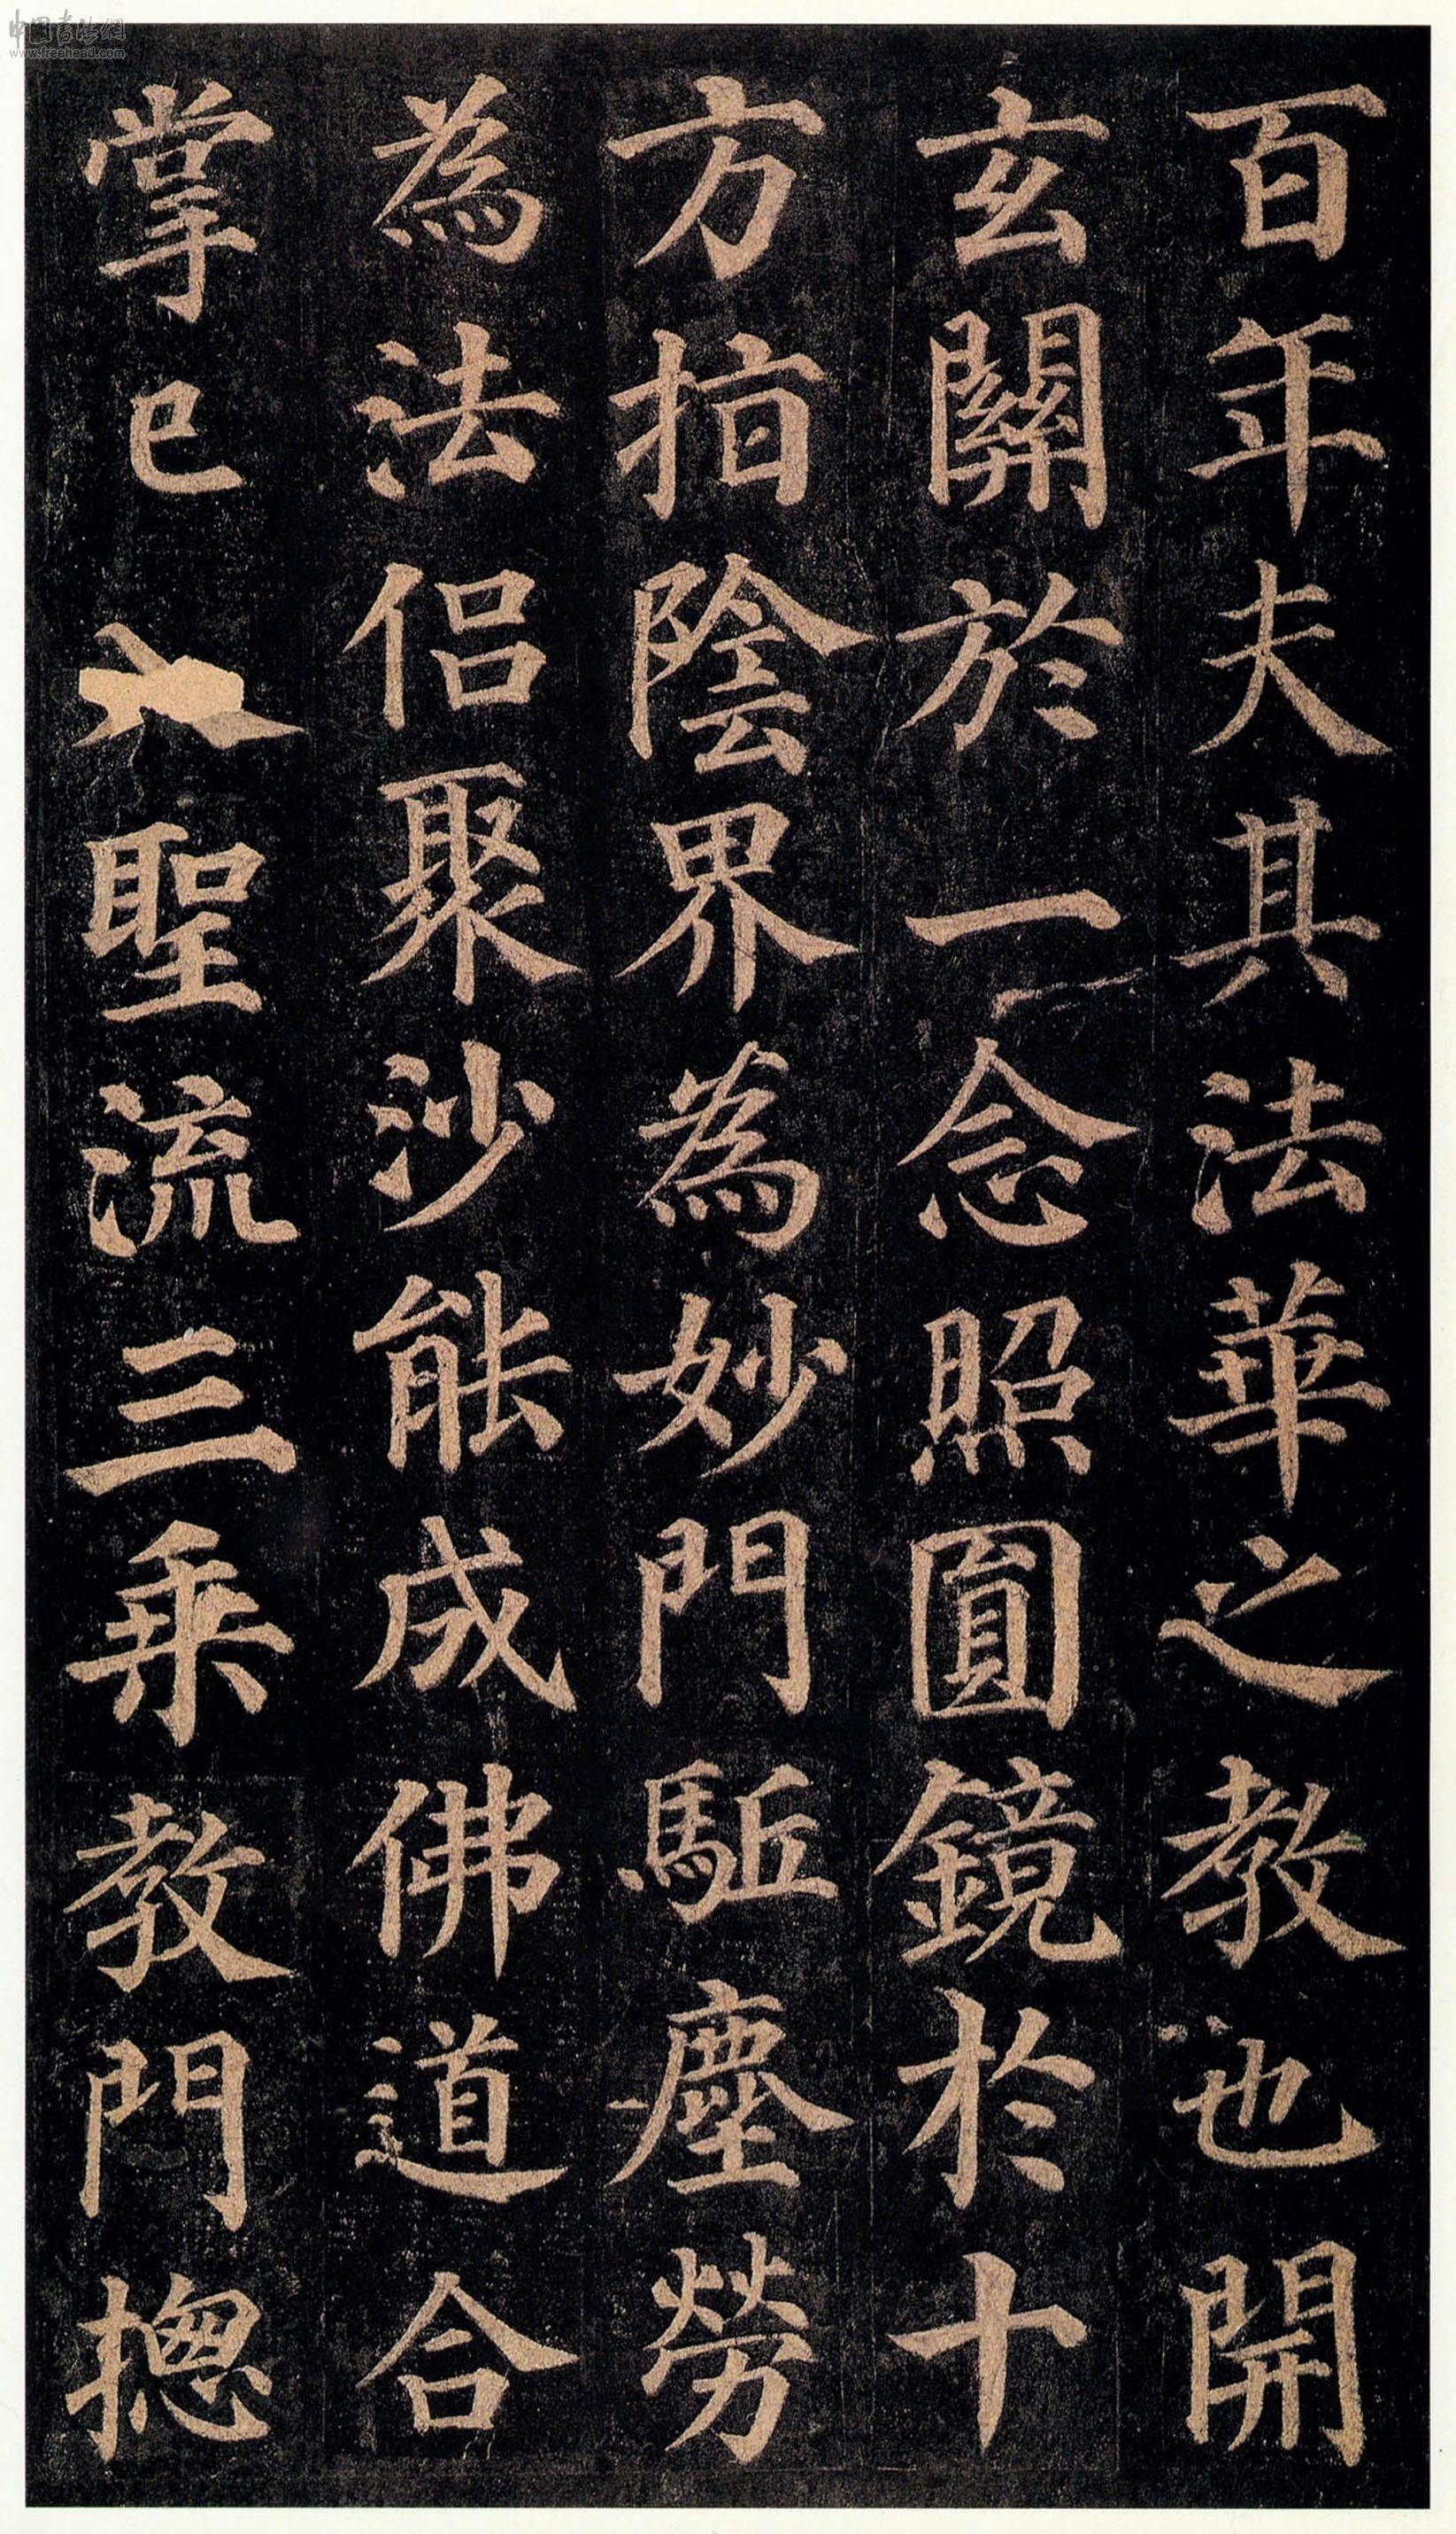 中国书法網
www.freehead.com
百年夫其法華之教也開
玄關於一念照圓鏡於十
方指陰界為妙門駈塵勞
為法侶聚沙能成佛道合
掌已聖流三乘教門揔